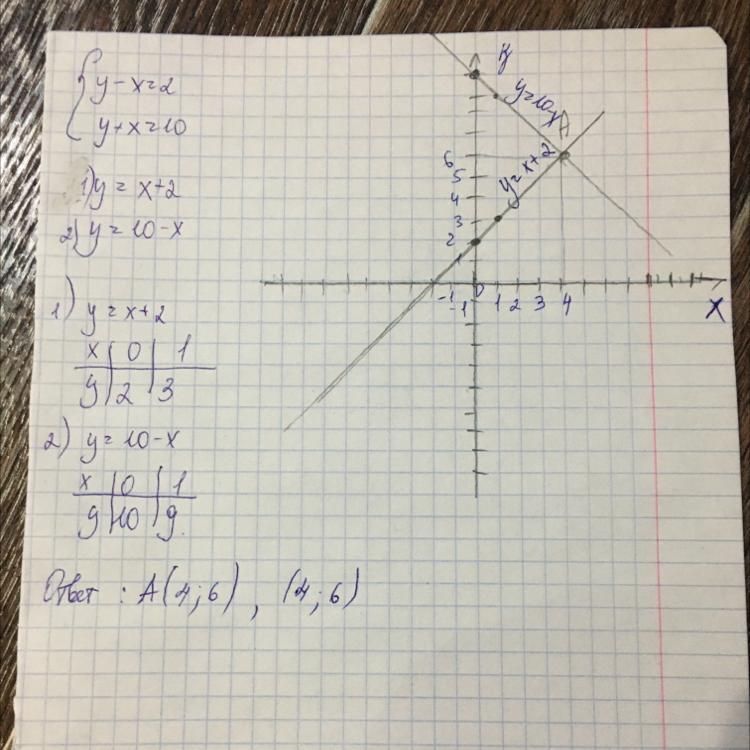 y - x = 2
y + x = 10
1) y = x + 2
2) y = 10 - x
1) y = x + 2
x 0 1
y 2 3
2) y = 10 - x
x 0 1
y 10 9
Ответ : A(4;6) , (4;6)
y
y=10-x
A
y=x+2
6
5
4
3
2
1
-1 0 1 2 3 4
-1
x